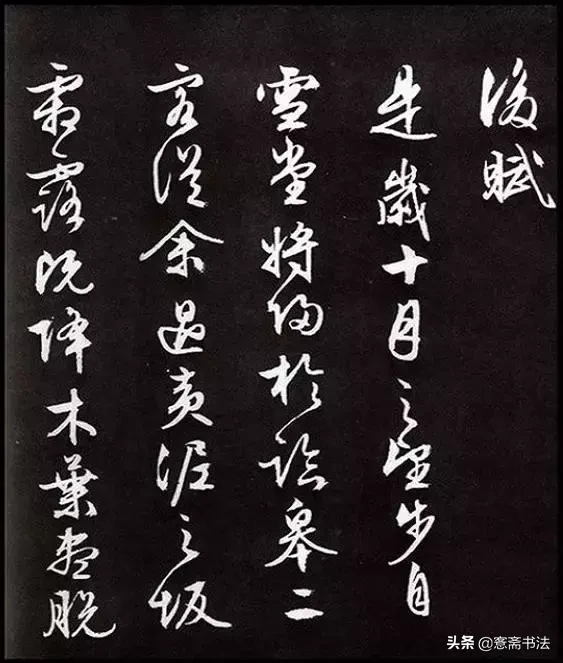 後賦
是歲十月之望步自
雪堂將歸於臨皋二
客從余過黃泥之坂
霜露既降木葉盡脫
头条 @斋书法